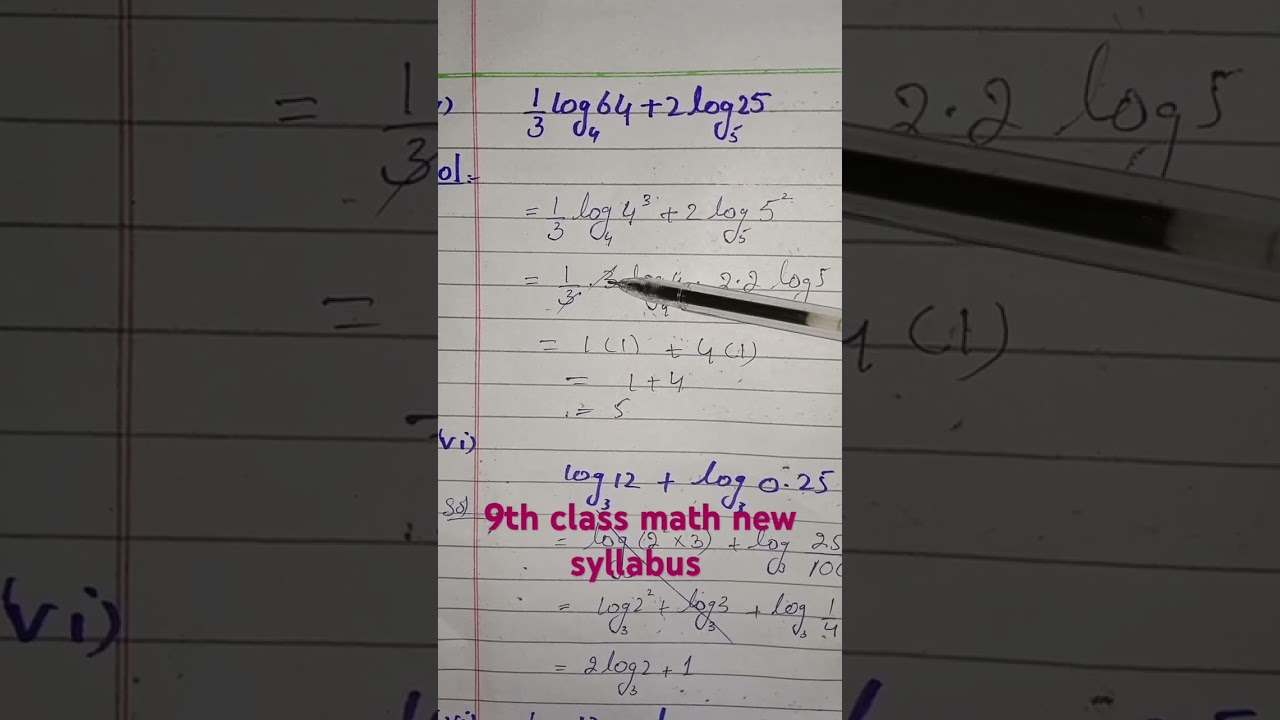 ) 1/3 log₄ 64 + 2 log₅ 25
ol.
= 1/3 log₄ 4³ + 2 log₅ 5²
= 1/3 . 3 2.2 log 5
= 1(1) + 4(1)
= 1 + 4
= 5
vi)
log₃ 12 + log₃ 0.25
Sol
9th class math new
= log (2² × 3) + log₃ 25/100
syllabus
= log₃ 2² + log₃ 3 + log₃ 1/4
= 2 log₃ 2 + 1